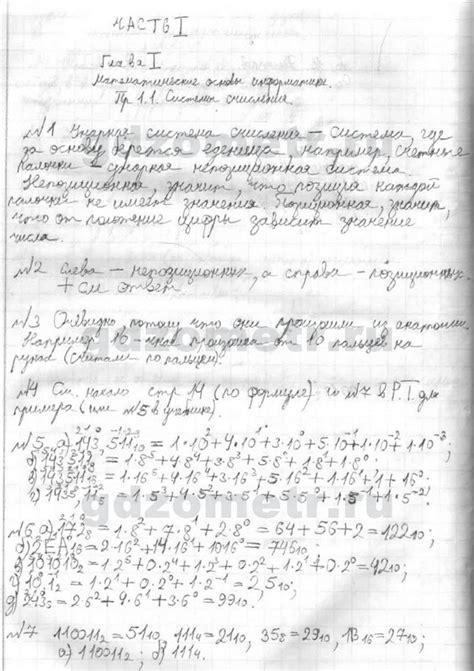 ЧАСТЬ I
Глава I.
Математические основы информатики.
Пр 1.1. Системы счисления.
№1 Унарная система счисления – система, где
за основу берется еденица, например, счетные
палочки – унарная непозиционная система.
Непозиционная, значит, что позиция каждой
палочки не имеет значения. Позиционная, значит,
что от положение цифры зависит значение
числа.
№2 Слева – непозиционных, а справа – позиционных.
+ см ответ.
№3 Очевидно потому что они произошли из анатомии
Например 10 - чная произошла от 10 пальцев на
руках (считали по пальцам).
№4 См. начало стр 14 (по формуле) и №7 в Р.Т. для
примера (или №5 в учебнике).
№5 а) 143,511₁₀ = 1·10²+4·10¹+3·10⁰+5·10⁻¹+1·10⁻²+1·10⁻³;
б) 143511₈ = 1·8⁵+4·8⁴+3·8³+5·8²+1·8¹+1·8⁰;
в) 143511₁₆ = 1·16⁵+4·16⁴+3·16³+5·16²+1·16¹+1·16⁰;
№6 а) 172₈ = 1·8²+7·8¹+2·8⁰ = 64+56+2 = 122₁₀;
б) 2EA₁₆ = 2·16²+14·16¹+10·16⁰ = 746₁₀;
в) 101010₂ = 1·2⁵+0·2⁴+1·2³+0·2²+1·2¹+0·2⁰ = 42₁₀;
г) 10,1₂ = 1·2¹+0·2⁰+1·2⁻¹ = 2,5₁₀;
д) 243₆ = 2·6²+4·6¹+3·6⁰ = 99₁₀.
№7 110011₂ = 51₁₀, 111₄ = 21₁₀, 35₈ = 29₁₀, 1B₁₆ = 27₁₀;
а) 110011₂; б) 111₄.
gdzometr.ru
gdzometr.ru
gdzometr.ru